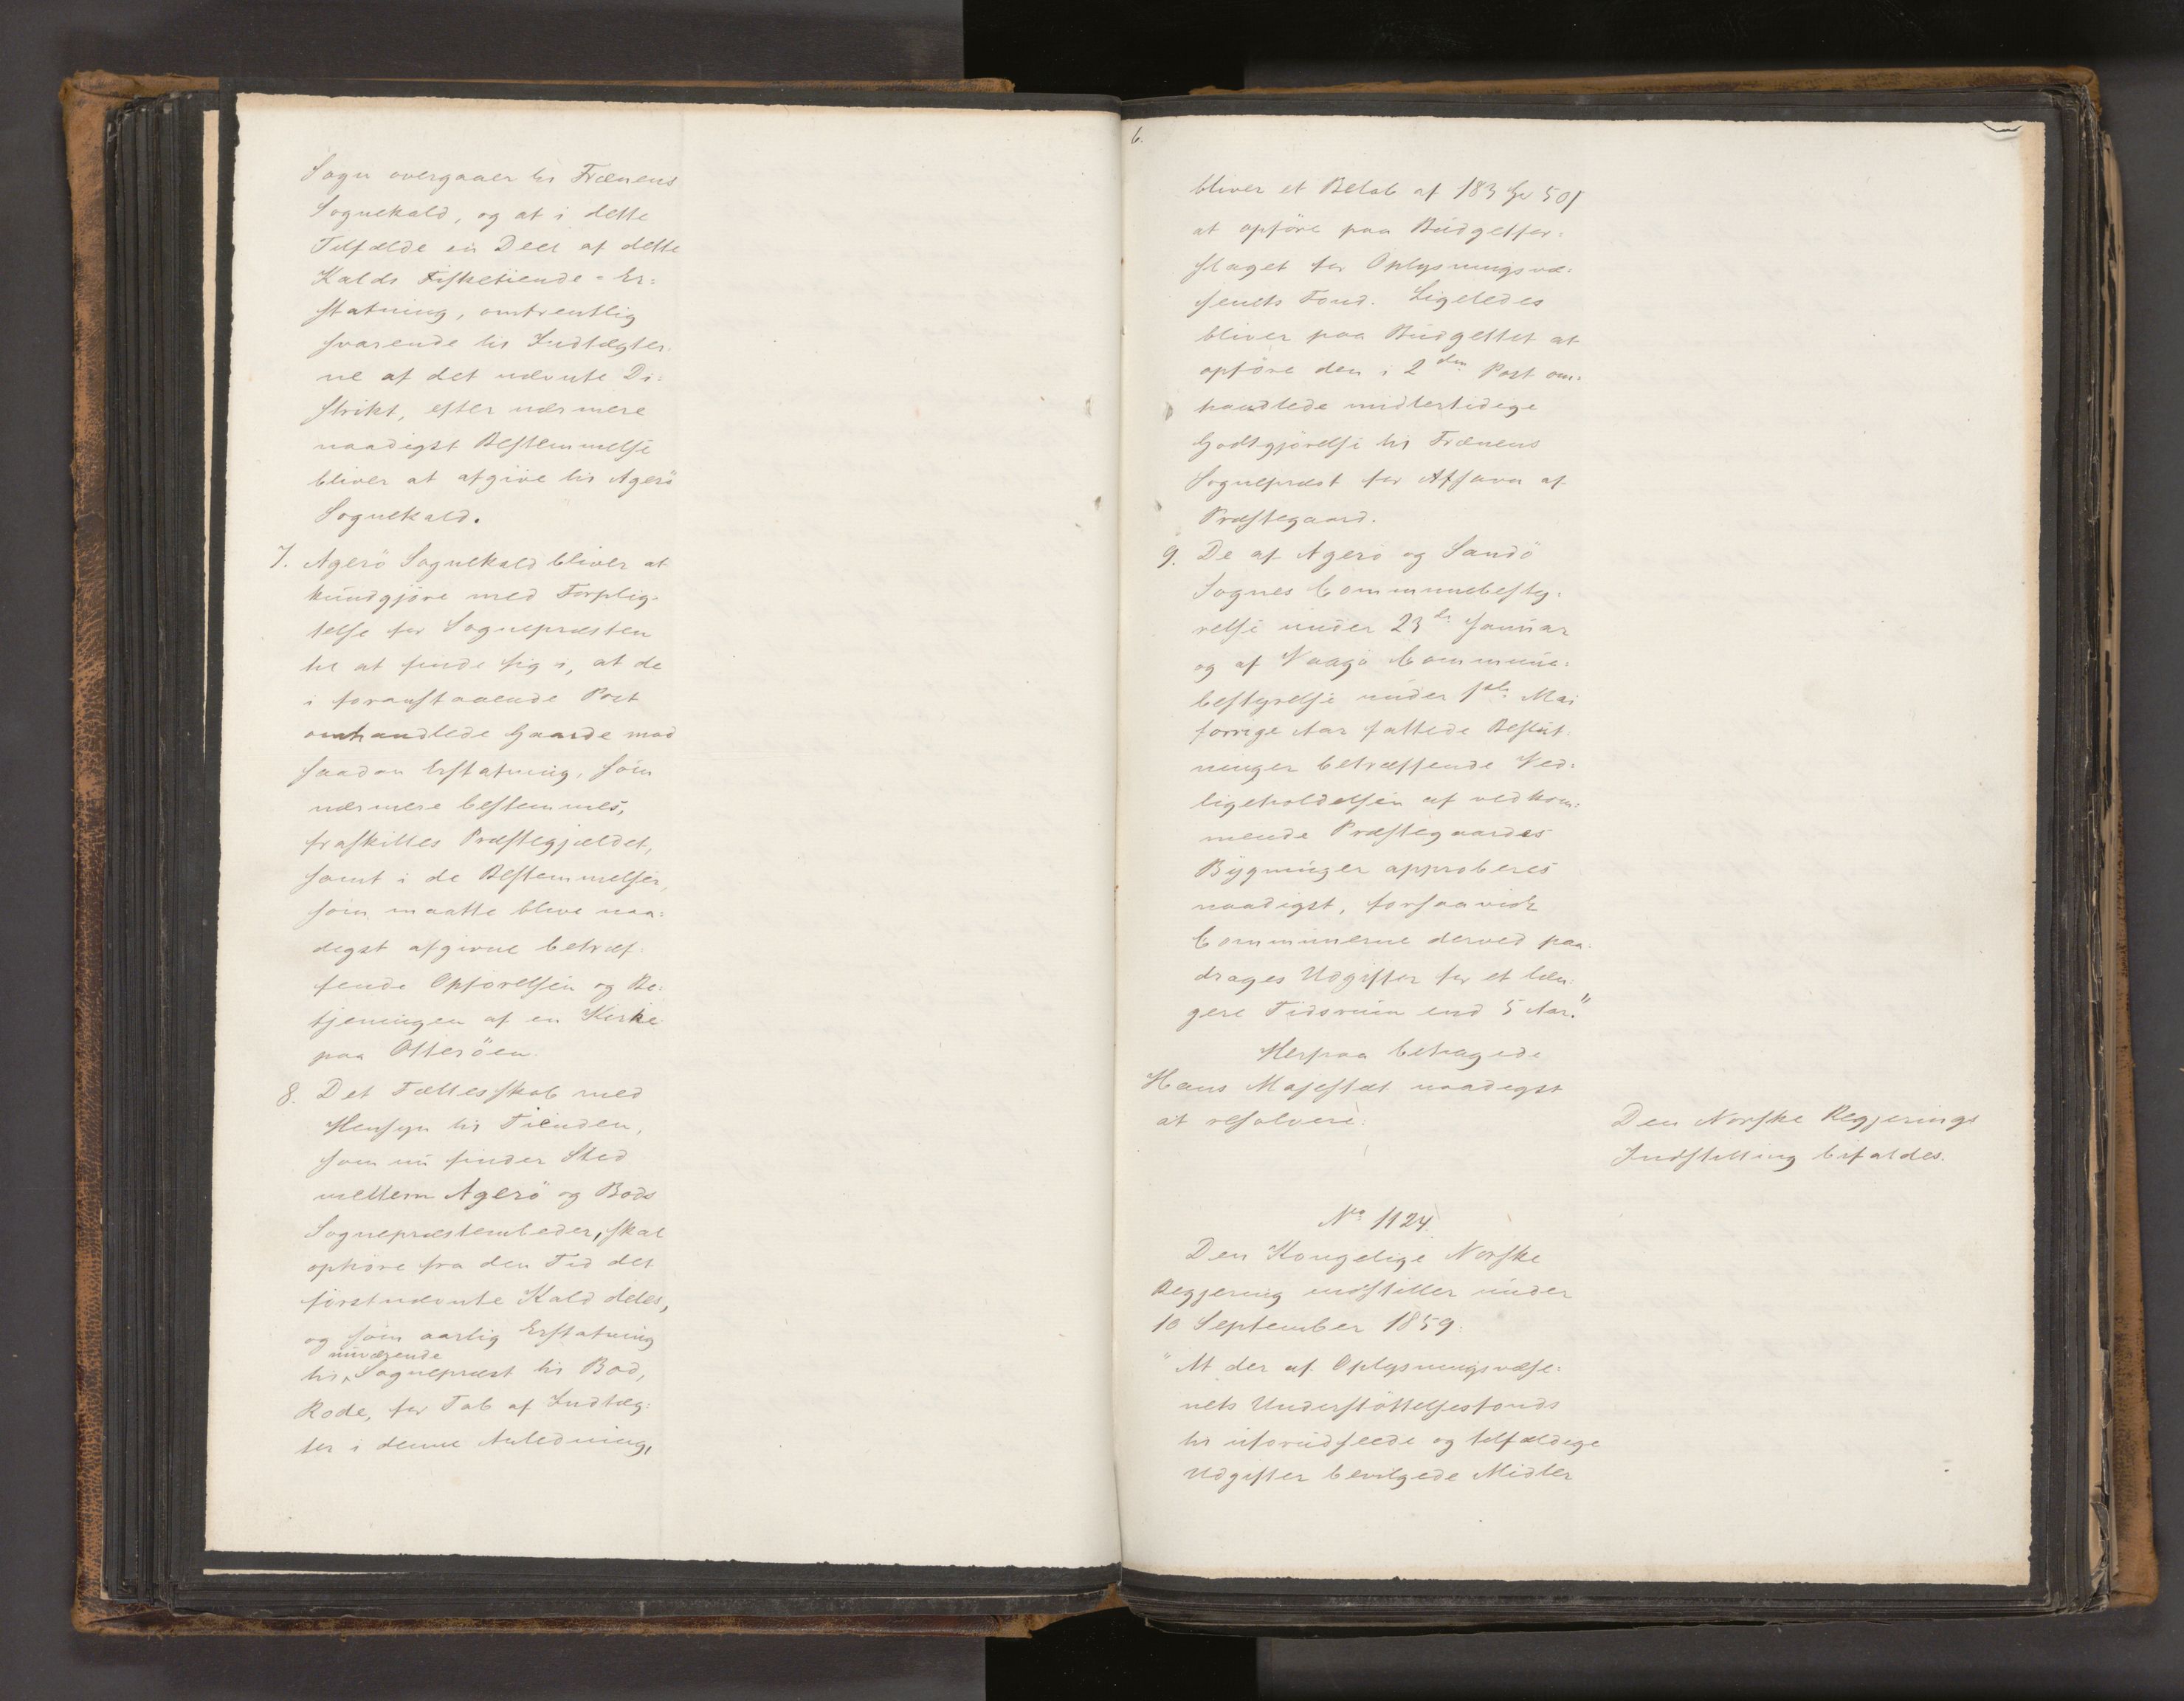 Sogn overgaaer til Frænens
Sognekald, og at i dette
Tilfælde en Deel af dette
Kalds Fisketiende-Er=
statning, omtrentlig
svarende til Indtægter=
ne af det nævnte Di=
strikt, efter nærmere
naadigst Bestemmelse
bliver at afgive til Agerö
Sognekald.
7. Agerö Sognekald bliver at
kundgjöre med Forplig=
telse for Sognepræsten
til at finde sig i, at de
i foranstaaende Post
omhandlede Gaarde mod
saadan Erstatning, som
nærmere bestemmes,
fraskilles Præstegjældet,
samt i de Bestemmelser,
som maatte blive naa=
digst afgivne betræf=
fende Opförelsen og Be=
tjeningen af en Kirke
paa Otteröen.
8. Det Fællesskab med
Hensyn til Tienden,
som nu finder Sted
mellem Agerö og Bods
Sognepræstembeder, skal
ophöre fra den Tid det
förstnævnte Kald deles,
og som aarlig Erstatning
nuværende
til Sognepræst til Bod,
Rode, for Tab af Indtæg=
ter i denne Anledning,
6.
bliver et Belöb af 183 50
at opföre paa Budgetfor=
slaget for Oplysningsvæ=
senets Fond. Ligeledes
bliver paa Budgettet at
opföre den i 2den Post om=
handlede midlertidige
Godtgjörelse til Frænens
Sognepræst for Afsavn af
Præstegaard.
9. De af Agerö og Sandö
Sognes Communebesty=
relse under 23de Januar
og af Vaagö Commune=
bestyrelse under 1ste Mai
forrige Aar fattede Beslut=
ninger betræffende Ved=
ligeholdelsen af vedkom=
mende Præstegaardes
Bygninger approberes
naadigst, forsaavidt
Communerne derved paa=
drages Udgifter for et læn=
gere Tidsrum end 5 Aar."
Herpaa behagede
Hans Majestæt naadigst
at resolvere:
Den Norske Regjerings
Indstilling bifaldes.
No 1124.
Den Kongelige Norske
Regjering indstiller under
10 September 1859.
"At der af Oplysningsvæse=
nets Understöttelsesfonds
til uforudseede og tilfældige
Udgifter bevilgede Midler